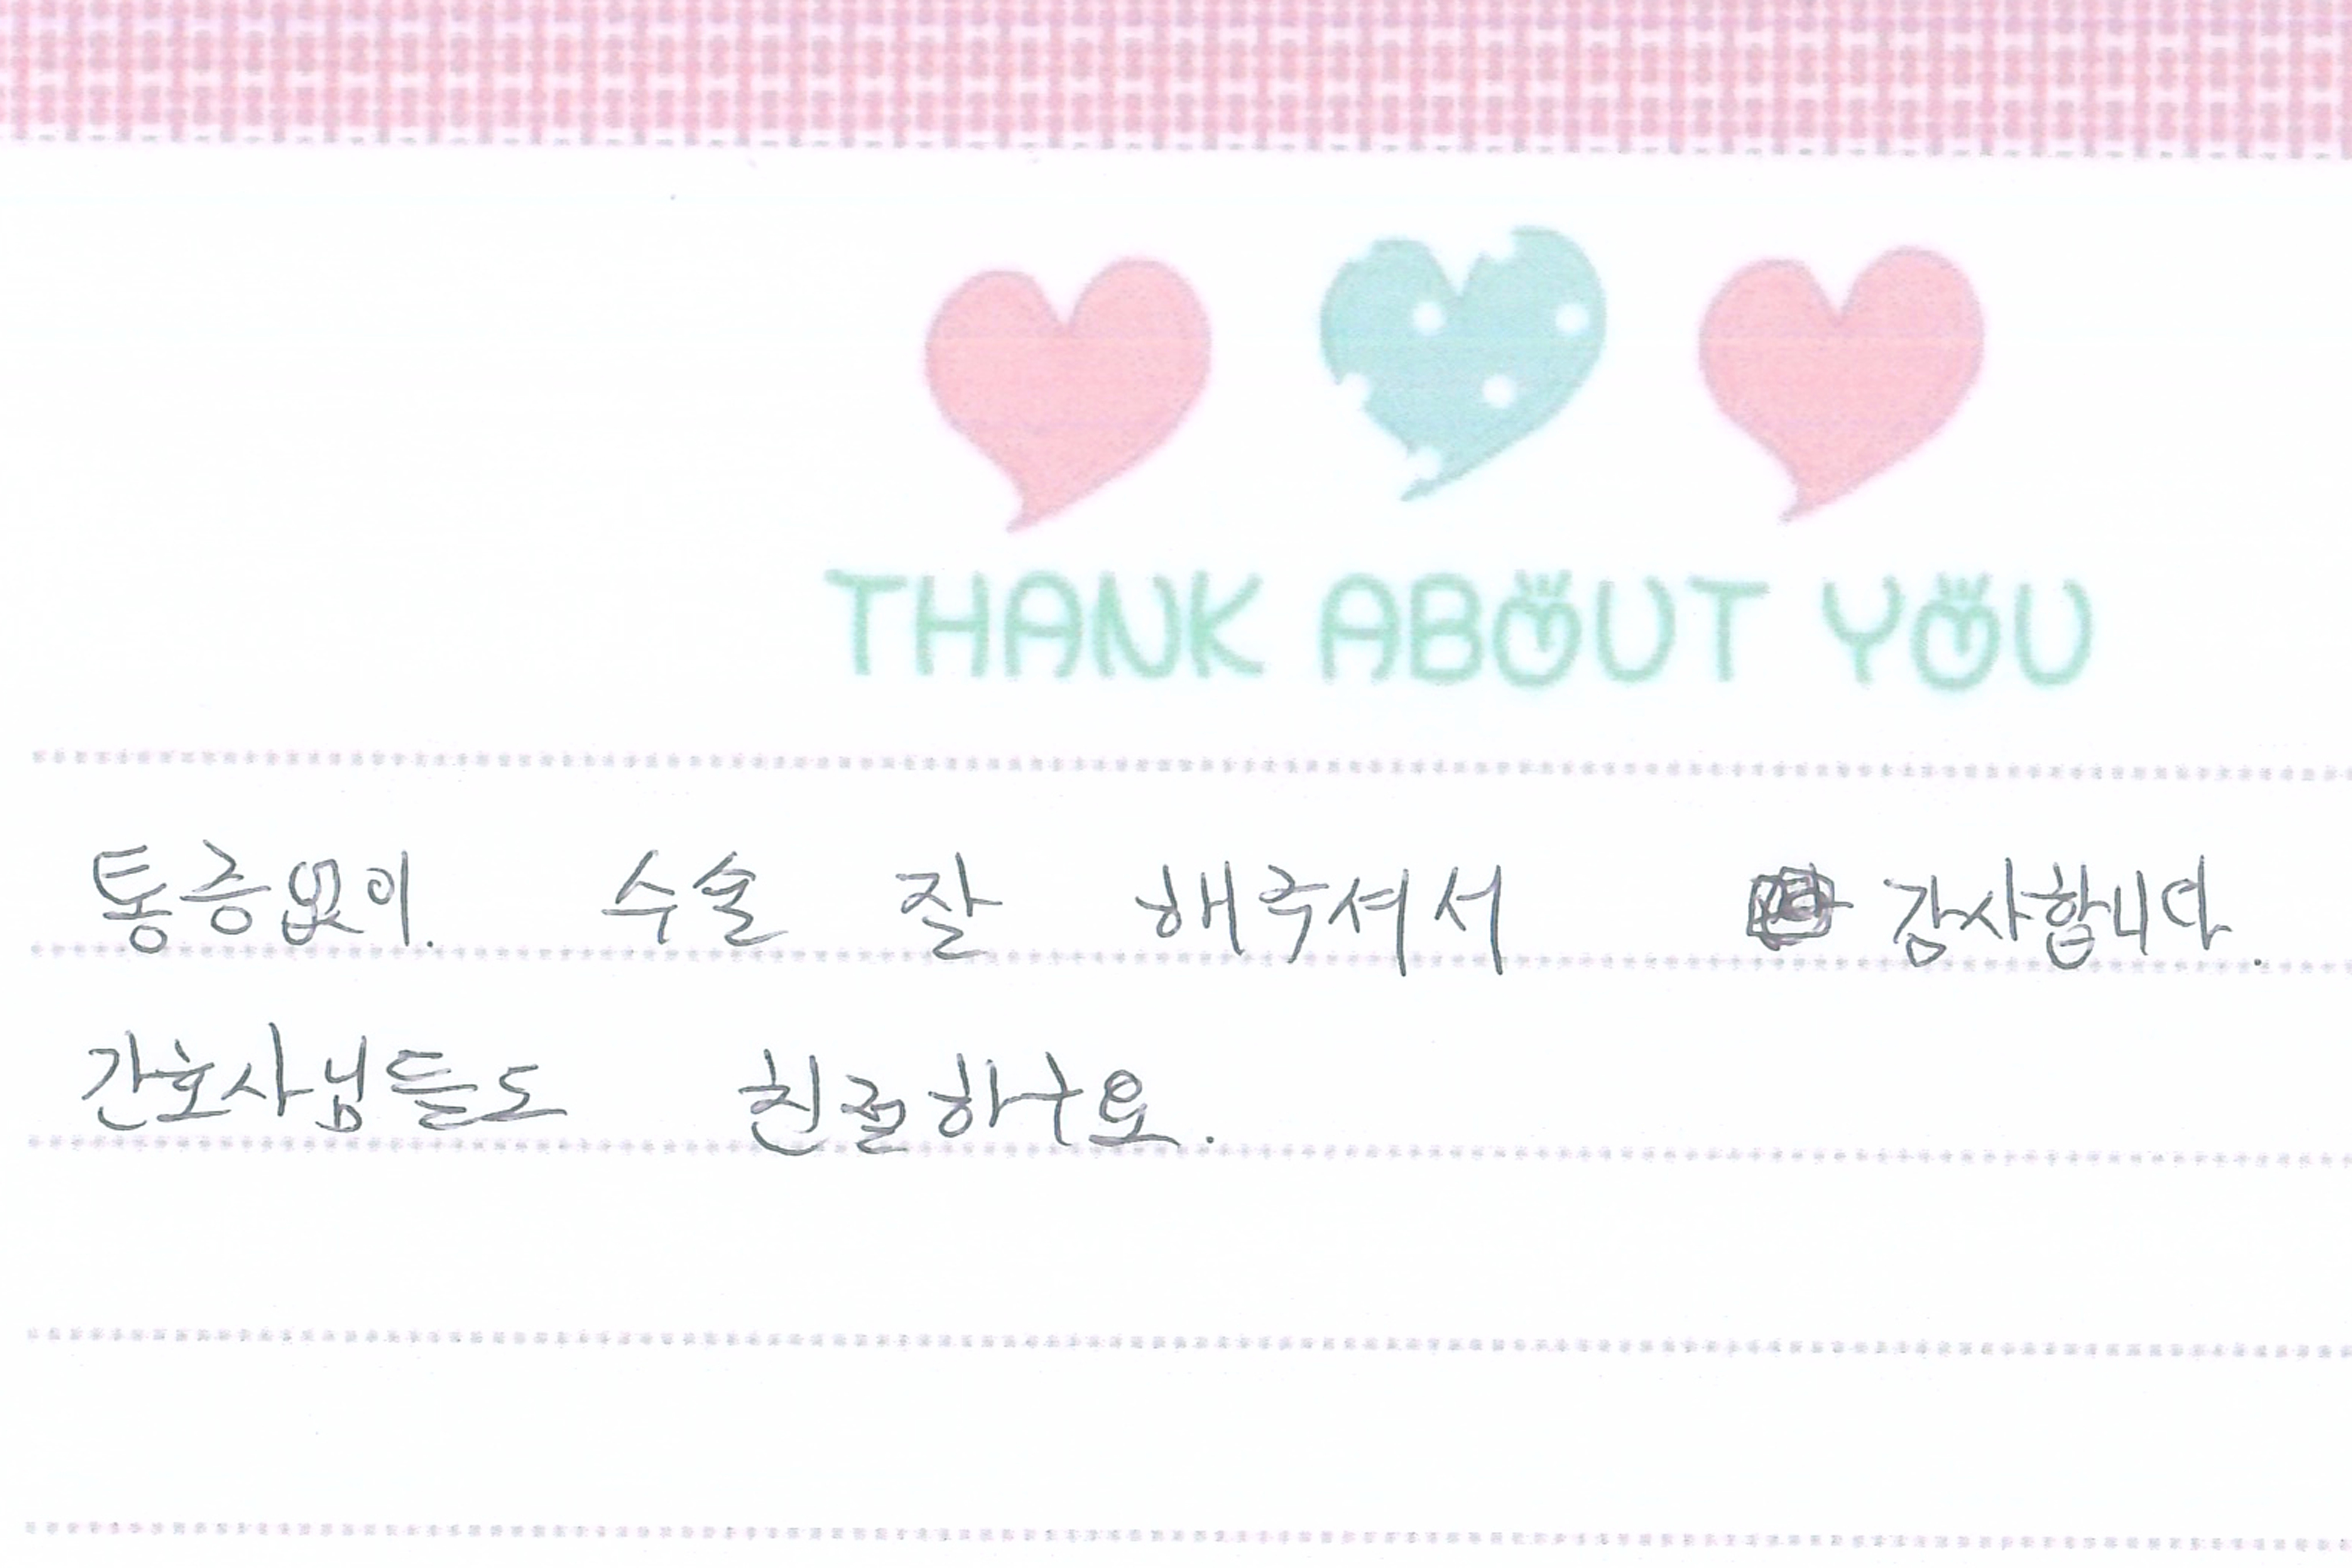 THANK ABOUT YOU
통증없이. 수술 잘 해주셔서 감사합니다.
간호사님들도 친절하구요.